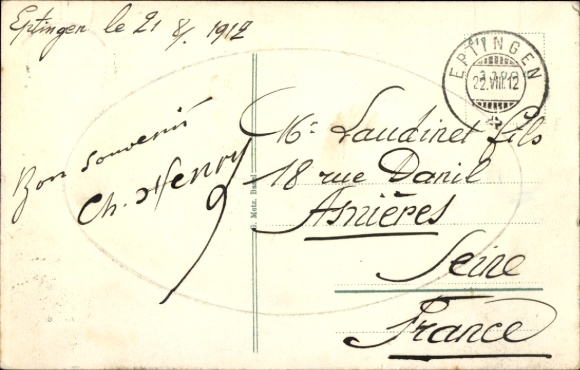 Eptingen le 21 8/. 1912
Bon souvenir
Ch. Henry
G. Metz, Basel
EPTINGEN
22.VIII.12
Mr Laudinet fils
18 rue Danil
Asnières
Seine
France